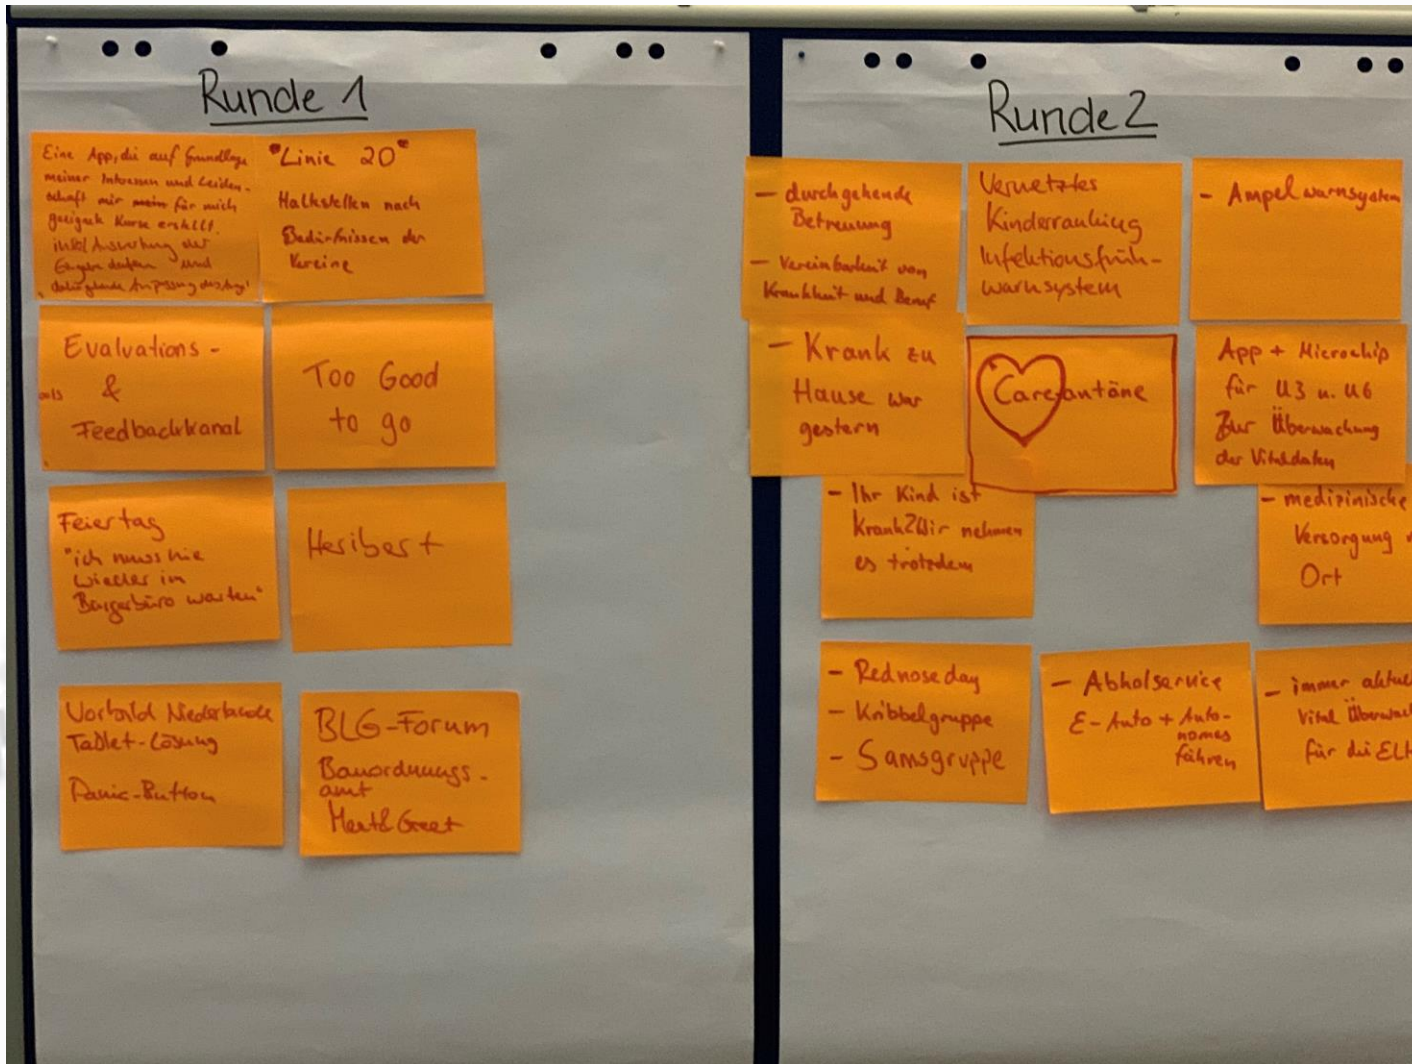 Runde 1
Eine App, die auf Grundlage
meiner Interessen und Leiden-
schaft mir mein für mich
Kurse erstellt.
inkl. Auswertung der
und
"Linie 20"
Haltestellen nach
Bedürfnissen der
Vereine
Evaluations-
&
Feedbackkanal
Too Good
to go
Feiertag
"ich muss nie
wieder im
Bürgerbüro warten"
Heribert
Vorbild Niederlande
Tablet-Lösung
Panic-Button
BLG-Forum
Bauordnungs-
amt
Meet & Greet
Runde 2
- durchgehende
Betreuung
- Vereinbarkeit von
Krankheit und Beruf
Vernetztes
Kinderranking
Infektionsfrüh-
warnsystem
- Ampelwarnsystem
- Krank zu
Hause war
gestern
Careantäne
App + Microchip
für U3 u. U6
Zur Überwachung
der Vitaldaten
- Ihr Kind ist
Krank? Wir nehmen
es trotzdem
- medizinische
Versorgung
Ort
- Rednoseday
- Kribbelgruppe
- Samsgruppe
- Abholservice
E-Auto + Auto-
nomes
fahren
- immer
Vital
für die